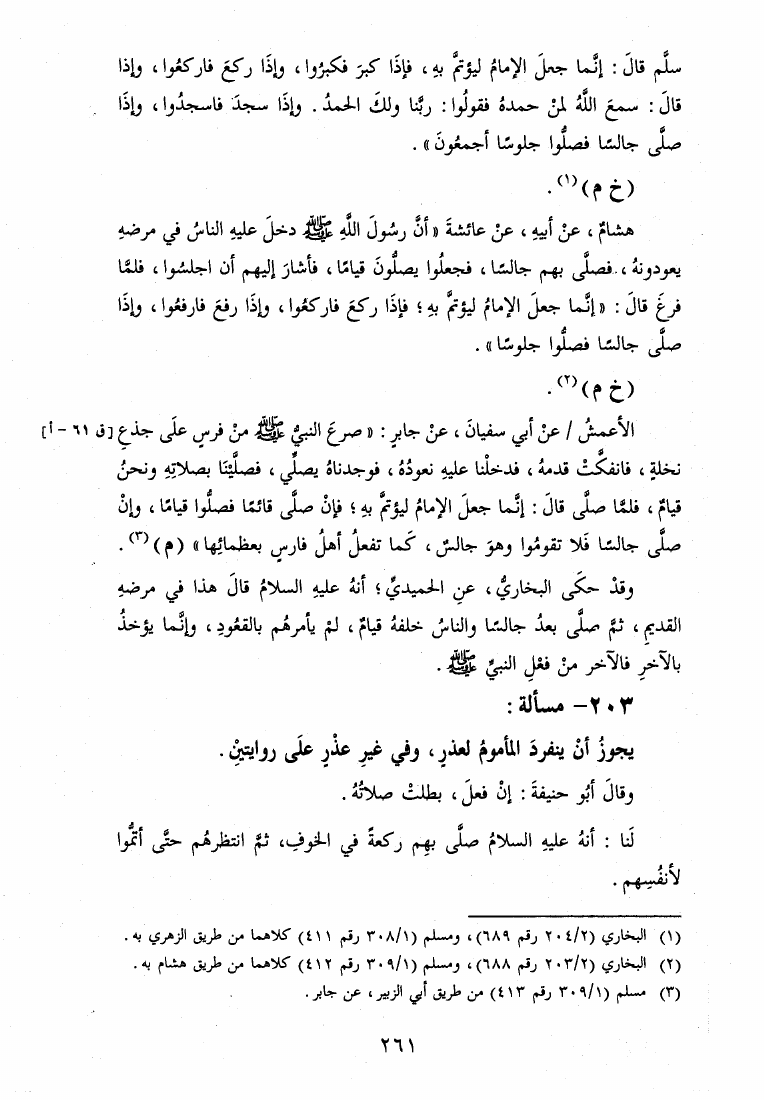 سلَّم قالَ : إنَّما جعلَ الإمامُ ليؤتمَّ بهِ ، فإذَا كبرَ فكبرُوا ، وإذَا ركعَ فاركعُوا ، وإذا
قالَ : سمعَ اللَّهُ لمنْ حمدهُ فقولُوا : ربَّنا ولكَ الحمدُ . وإذَا سجدَ فاسجدُوا ، وإذَا
صلَّى جالسًا فصلُّوا جلوسًا أجمعُونَ » .
(خ م)(١) .
هشامٌ ، عنْ أبيهِ ، عنْ عائشةَ « أنَّ رسُولَ اللَّهِ ﷺ دخلَ عليهِ الناسُ في مرضهِ
يعودونهُ ، فصلَّى بهم جالسًا ، فجعلُوا يصلُّونَ قيامًا ، فأشارَ إليهم أن اجلسُوا ، فلمَّا
فرغَ قالَ : « إنَّما جعلَ الإمامُ ليؤتمَّ بهِ ؛ فإذَا ركعَ فاركعُوا ، وإذَا رفعَ فارفعُوا ، وإذَا
صلَّى جالسًا فصلُّوا جلوسًا » .
(خ م)(٢) .
الأعمشُ / عنْ أبي سفيانَ ، عنْ جابرٍ : « صرعَ النبيُّ ﷺ منْ فرسٍ علَى جذعِ [ق ٦١ - أ]
نخلةٍ ، فانفكَّتْ قدمهُ ، فدخلْنا عليهِ نعودُهُ ، فوجدناهُ يصلِّي ، فصلَّيْنَا بصلاتِهِ ونحنُ
قيامٌ ، فلمَّا صلَّى قالَ : إنَّما جعلَ الإمامُ ليؤتمَّ بهِ ؛ فإنْ صلَّى قائمًا فصلُّوا قيامًا ، وإنْ
صلَّى جالسًا فَلا تقومُوا وهوَ جالسٌ ، كَما تفعلُ أهلُ فارسٍ بعظمائِها » (م)(٣) .
وقدْ حكَى البخاريُّ ، عنِ الحميديِّ ؛ أنهُ عليهِ السلامُ قالَ هذا في مرضهِ
القديمِ ، ثمَّ صلَّى بعدُ جالسًا والناسُ خلفهُ قيامٌ ، لمْ يأمرهُم بالقعُودِ ، وإنَّما يؤخذُ
بالآخرِ فالآخر منْ فعْلِ النبيِّ ﷺ .
٢٠٣- مسألة :
يجوزُ أنْ ينفردَ المأمومُ لعذرٍ ، وفي غيرِ عذْرٍ علَى روايتينْ .
وقالَ أبُو حنيفةَ : إنْ فعلَ ، بطلتْ صلاتُهُ .
لَنا : أنهُ عليهِ السلامُ صلَّى بهِم ركعةً في الخوفِ، ثمَّ انتظرهُم حتَّى أتمُّوا
لأنفُسِهم .
(١) البخاري (٢٠٤/٢ رقم ٦٨٩) ، ومسلم (٣٠٨/١ رقم ٤١١) كلاهما من طريق الزهري به .
(٢) البخاري (٢٠٣/٢ رقم ٦٨٨) ، ومسلم (٣٠٩/١ رقم ٤١٢) كلاهما من طريق هشام به .
(٣) مسلم (٣٠٩/١ رقم ٤١٣) من طريق أبي الزبير ، عن جابر .
٢٦١